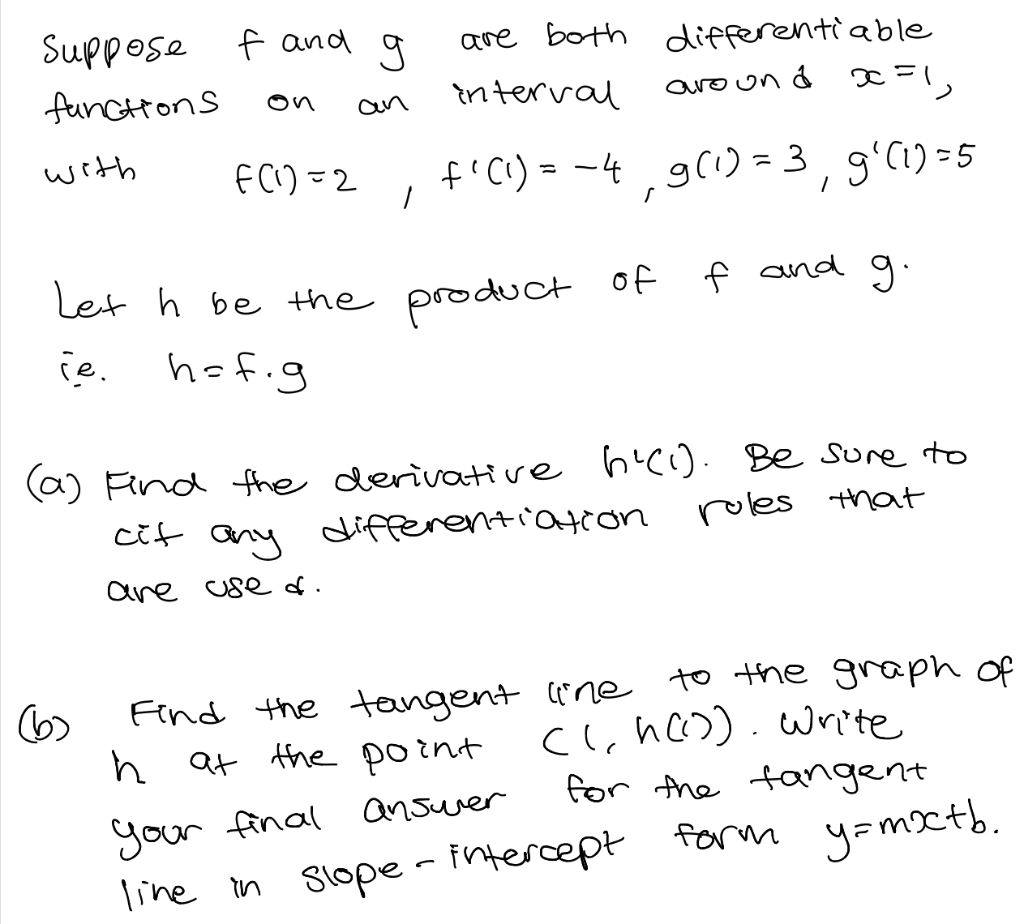 Suppose f and g are both differentiable
functions on an interval around x=1,
with f(1)=2 , f'(1) = -4 , g(1) = 3 , g'(1)=5
Let h be the product of f and g.
ie. h=f.g
(a) Find the derivative h'(1). Be sure to
cit any differentiation rules that
are used.
(b) Find the tangent line to the graph of
h at the point (1, h(1)). Write
your final answer for the tangent
line in slope-intercept form y=mx+b.